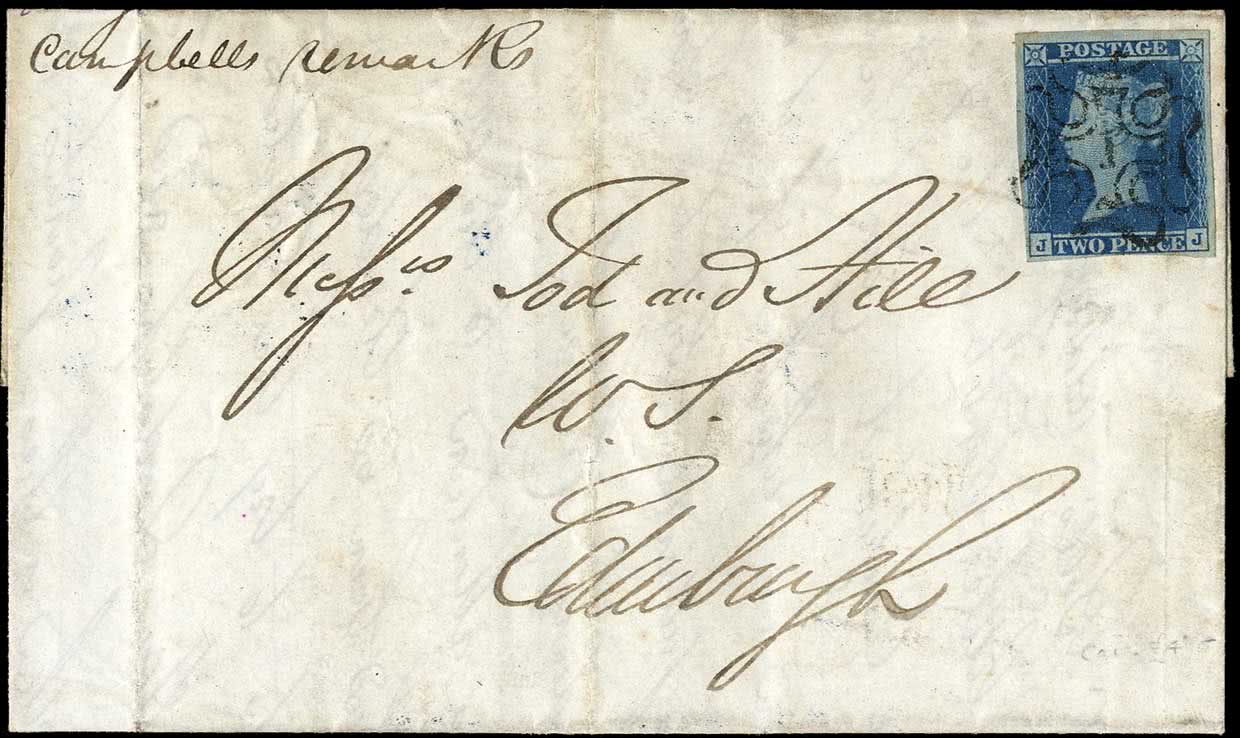 Campbells remarks
POSTAGE
J TWO PENCE J
Messrs. Tod and Hill
W. S.
Edinburgh